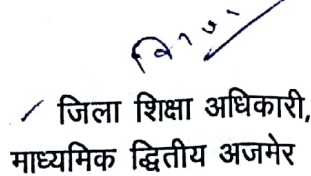 जिला शिक्षा अधिकारी,
माध्यमिक द्धितीय अजमेर